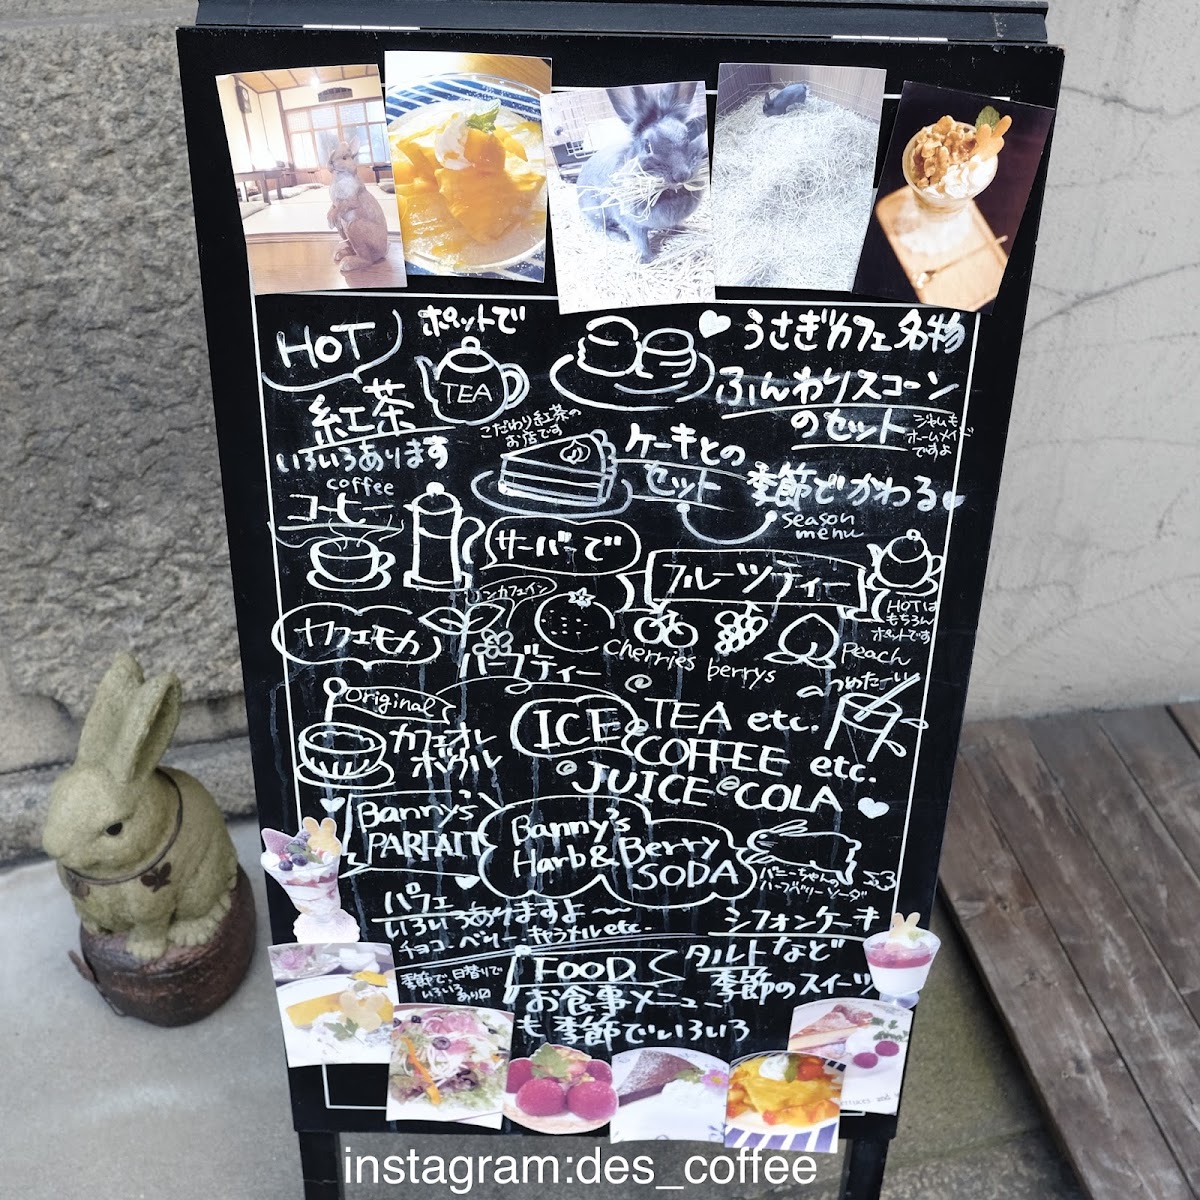 HOT
ポットで
TEA
紅茶
いろいろあります
こだわり紅茶の
お店です
うさぎカフェ名物
ふんわりスコーン
のセット
ジャムも
ホームメイド
ですよ
ケーキとの
セット
季節でかわる
season
menu
coffee
コーヒー
サーバーで
フルーツティー
HOTは
もちろん
ポットです
カフェモカ
ノンカフェイン
ハーブティー
cherries
berrys
Peach
つめたーい
Original
カフェオレ
ボウル
ICE
TEA etc.
COFFEE etc.
JUICE COLA
Banny's
PARFAIT
Banny's
Harb & Berry
SODA
バニーちゃんの
ハーブベリーソーダ
パフェ
いろいろありますよ〜
チョコ・ベリー・キャラメルetc.
シフォンケーキ
タルトなど
季節のスイーツ
季節で、日替りで
いろいろ
あり
FOOD
お食事メニュー
も季節でいろいろ
instagram:des_coffee